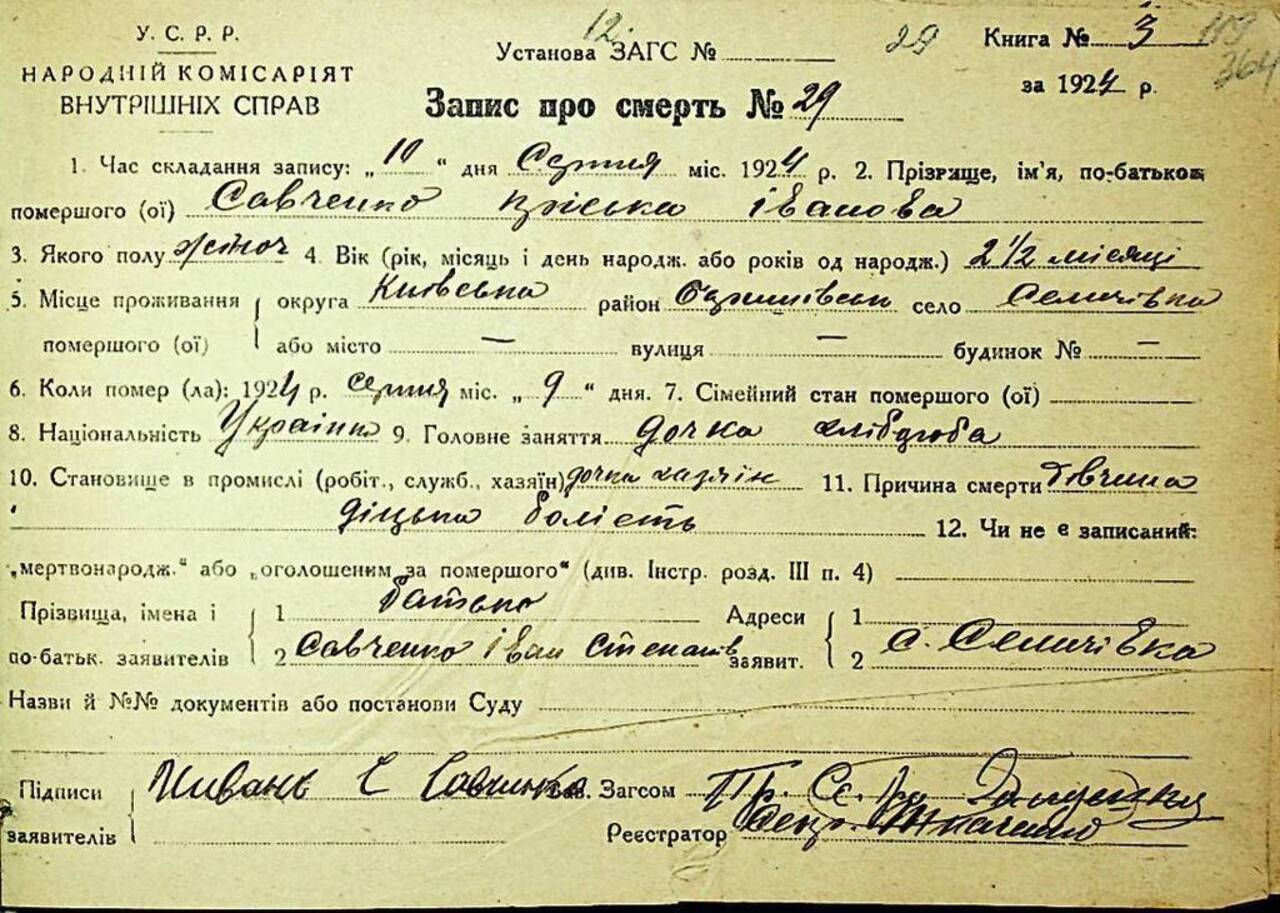 У. С. Р. Р.
НАРОДНІЙ КОМІСАРІЯТ
ВНУТРІШНІХ СПРАВ
12.
Установа ЗАГС №
29
Книга № 3
113
364
за 1924 р.
Запис про смерть № 29
1. Час складання запису: „10“ дня Серпня міс. 1924 р. 2. Прізвище, ім'я, по-батькові
помершого (ої) Савченко Пріська Іванова
3. Якого полу жіноч 4. Вік (рік, місяць і день народж. або років од народж.) 2 1/2 місяці
5. Місце проживання округа Київська район село Семичівка
помершого (ої) або місто — вулиця — будинок № —
6. Коли помер (ла): 1924 р. серпня міс. „9“ дня. 7. Сімейний стан помершого (ої)
8. Національність Українка 9. Головне заняття дочка хлібороба
10. Становище в промислі (робіт., служб., хазяїн) дочка хазяїн 11. Причина смерти
боліеть 12. Чи не є записаний:
„мертвонародж.“ або „оголошеним за помершого“ (див. Інстр. розд. III п. 4)
Прізвища, імена і 1 батько Адреси 1
по-батьк. заявителів 2 Савченко Іван Степанів заявит. 2 с. Семичівка
Назви й №№ документів або постанови Суду
Підписи Зав. Загсом
заявителів Реєстратор Ткаченко